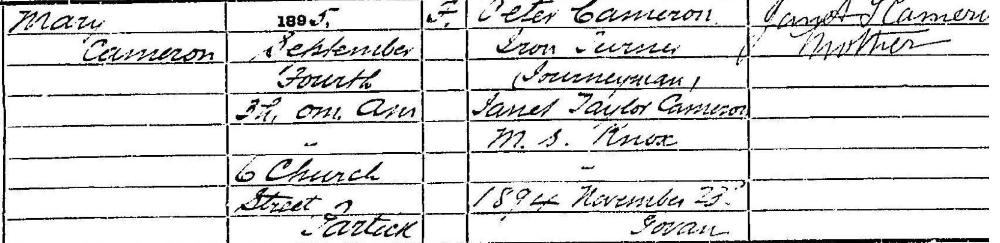 Mary
Cameron
1895.
September
Fourth
3h. 0m. Am
"
6 Church
Street
Partick
F.
Peter Cameron
Iron Turner
(Journeyman)
Janet Taylor Cameron
M.S. Knox
"
1894 November 23d
Govan
Janet T Camero
Mother